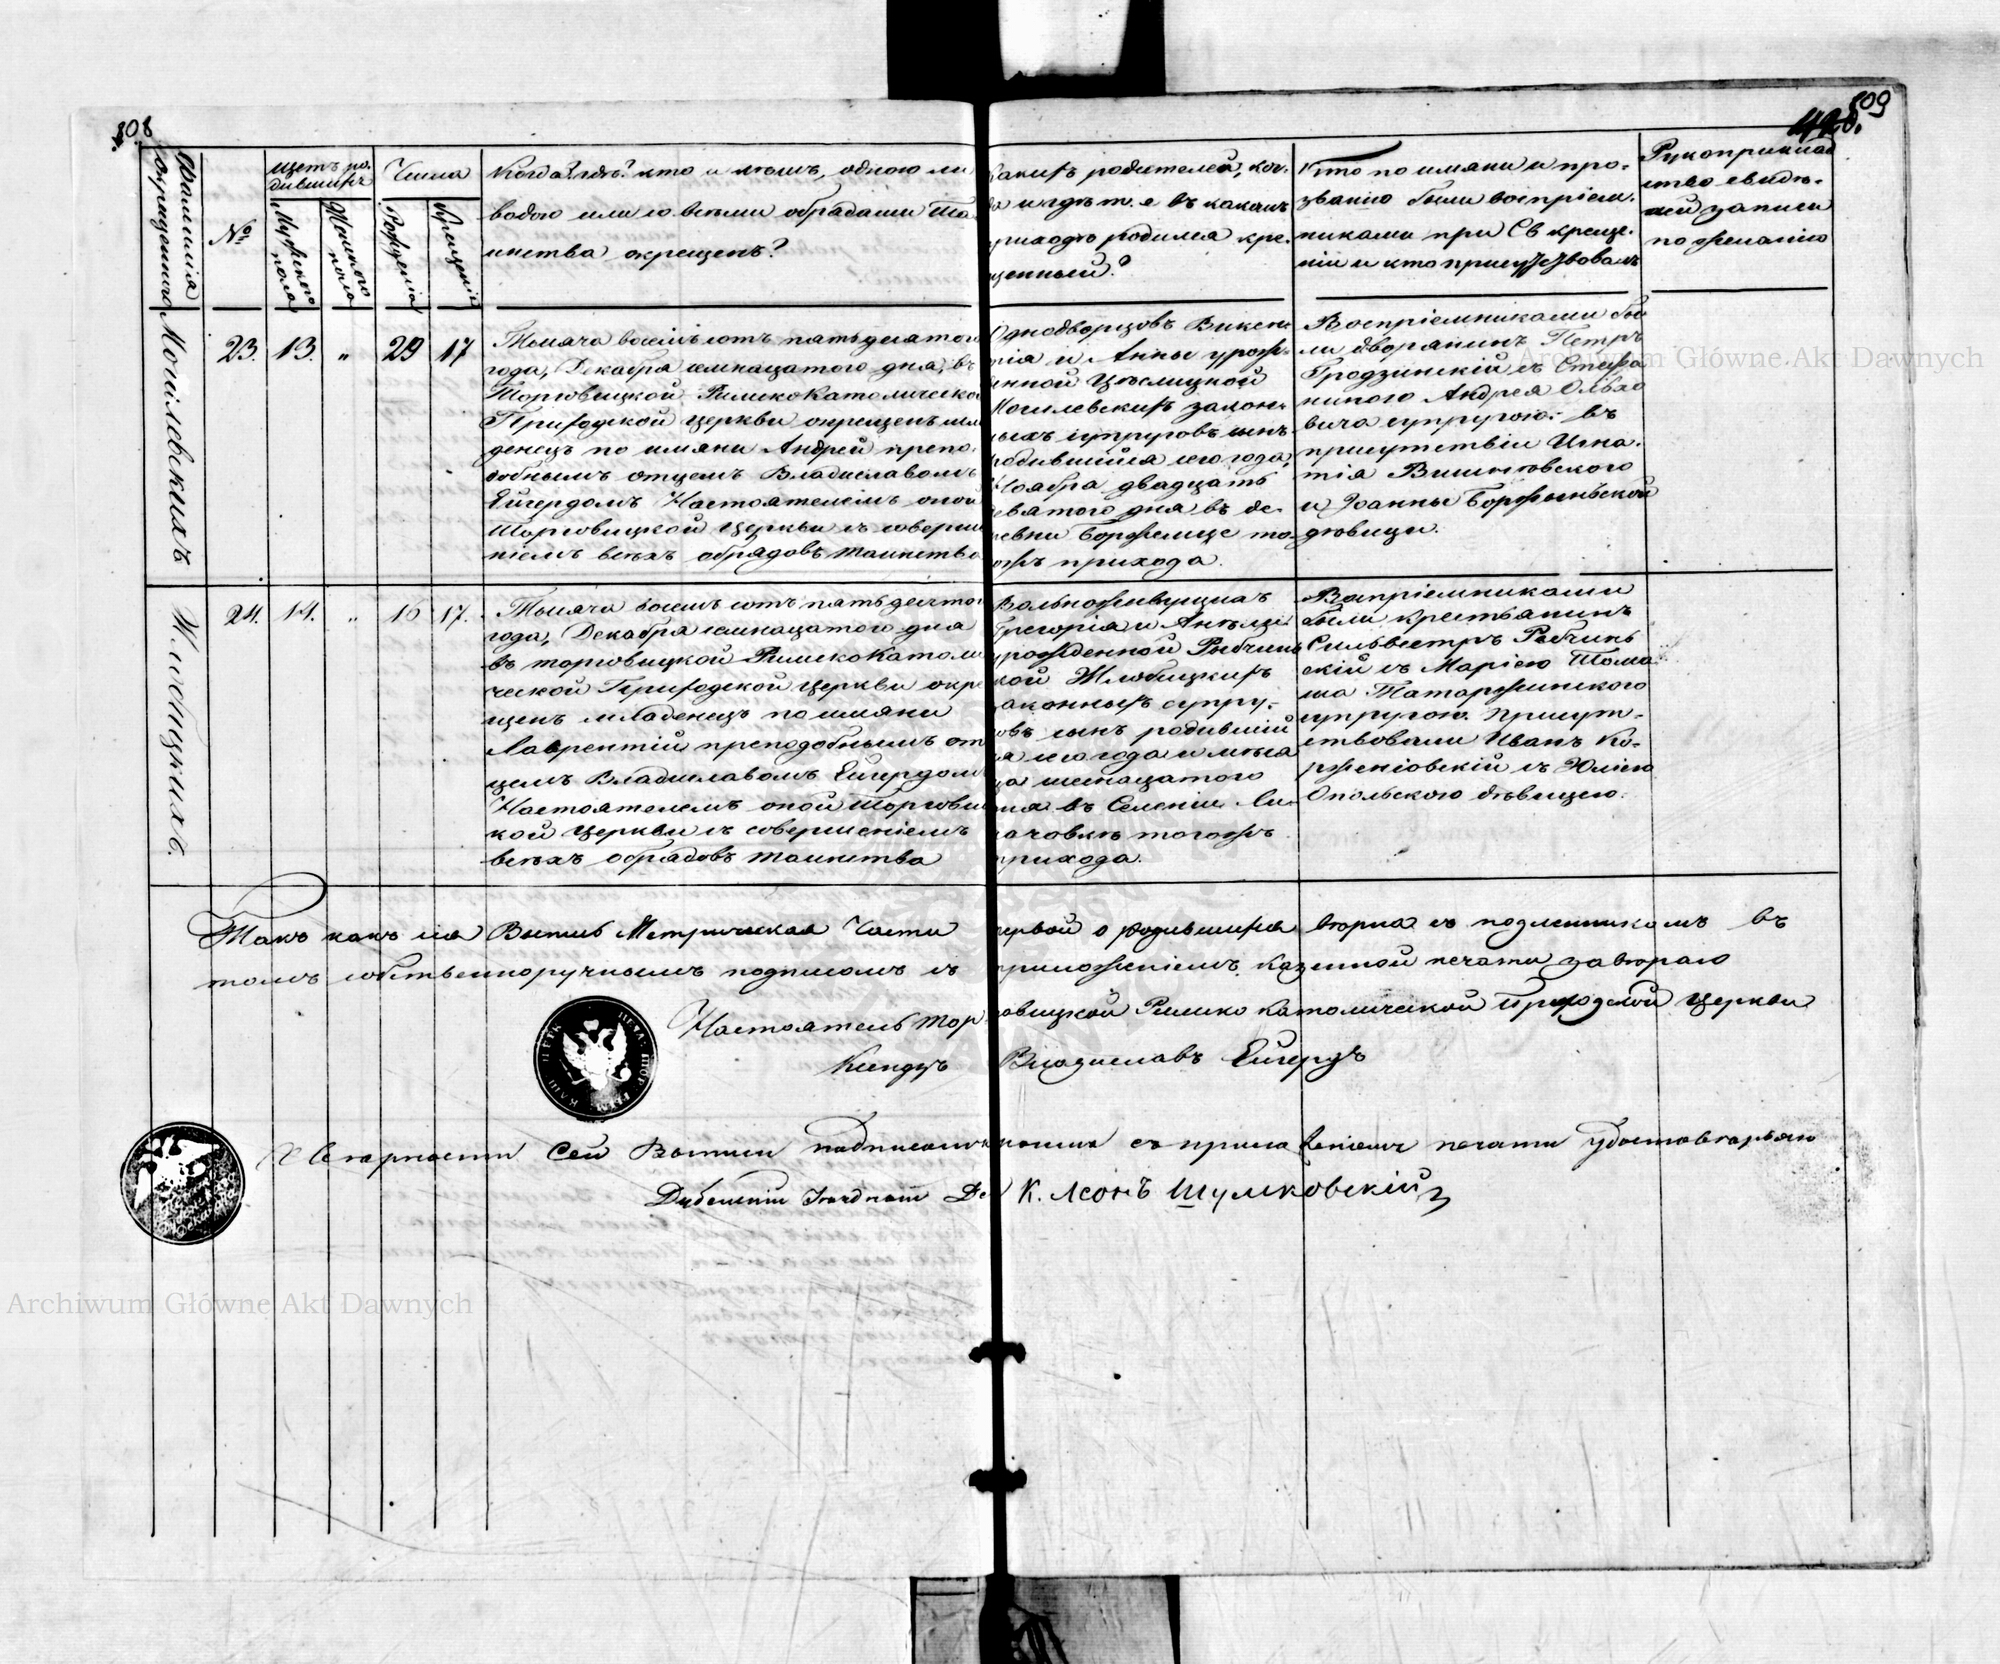 808
809
Фамилия окрещеннаго
№
щетъ родившихъ
Мужескаго пола
Женскаго пола
Числа
Рожденія
Крещенія
Когда? гдѣ? кто и кѣмъ, одною ли
водою или со всѣми обрядами Таи
инства окрещенъ?
Какихъ родителей, ког-
да и гдѣ т. е въ какомъ
приходѣ родился кре-
щенный?
Кто по имяни и про-
званію были воспріем-
никами при Св креще-
ніи и кто присутствовалъ
Рукоприклад
ство свидѣ-
записи
по желанію
Могилевскихъ
23. 13. „ 29 17
Тысяча восемьсотъ пятьдесятого
года, Декабря семнацатого дня, въ
Торговицкой Римско Католической
Приходской церкви окрещенъ мла
денецъ по имяни Андрей препо-
добнымъ отцемъ Владиславомъ
Ейгердомъ Настоятелемъ оной
Торговицкой Церкви съ соверше
ніемъ всѣхъ обрядовъ таинства
Однодворцовъ Викен
тія и Анны урож-
енной
Могилевскихъ закон-
ныхъ супруговъ сынъ
родившійся сего года,
Ноября двадцать
девятого дня въ де-
ревни Боремелице то-
гожъ прихода.
Воспріемниками бы
ли дворянинъ Петръ
Гродзинскій съ Стефа
ниною Андрея
вича супругою: въ
присутствіи Игна-
тія
и Іоанны
дѣвицы.
24. 14. „ 16 17.
Тысяча восемь сотъ пятьдесятого
года, Декабря семнацатого дня
въ торговицкой Римско Католи
ческой Приходской Церкви окре
щенъ младенецъ по имяни
Лаврентій преподобнымъ от
цемъ Владиславомъ Ейгердомъ
Настоятелемъ оной Торгови
кой Церкви съ совершеніемъ
всѣхъ обрядовъ таинства
Григорія и
урожденной Рыбчинь
кой
законныхъ супру-
говъ сынъ родившій
ся сего года и мѣся
ца шеснацатого
дня въ Селеніи
тогожъ
прихода.
Воспріемниками
были крестьянинъ
Сильвестръ Рыбчинь
скій съ Маріею Тома
ша Татаржинского
супругою. Присут-
ствовали Иванъ Ко-
рженіовскій съ Юліею
Опольского дѣвицею.
Такъ какъ сія Выпись Метрическая Части первой о родившихся вѣрна съ подленникомъ въ
томъ собственноручнымъ подписомъ съ приложеніемъ казенной печати завѣряю
Настоятель Торговицкой Римско Католической Приходской Церкви
Ксендзъ Владиславъ Ейгердъ
вѣрности Сей Выписи подписомъ моимъ съ приложеніемъ печати удостовѣряю
Дубенскій Деканъ К. Леонъ Шумковскій
Archiwum Główne Akt Dawnych
Archiwum Główne Akt Dawnych